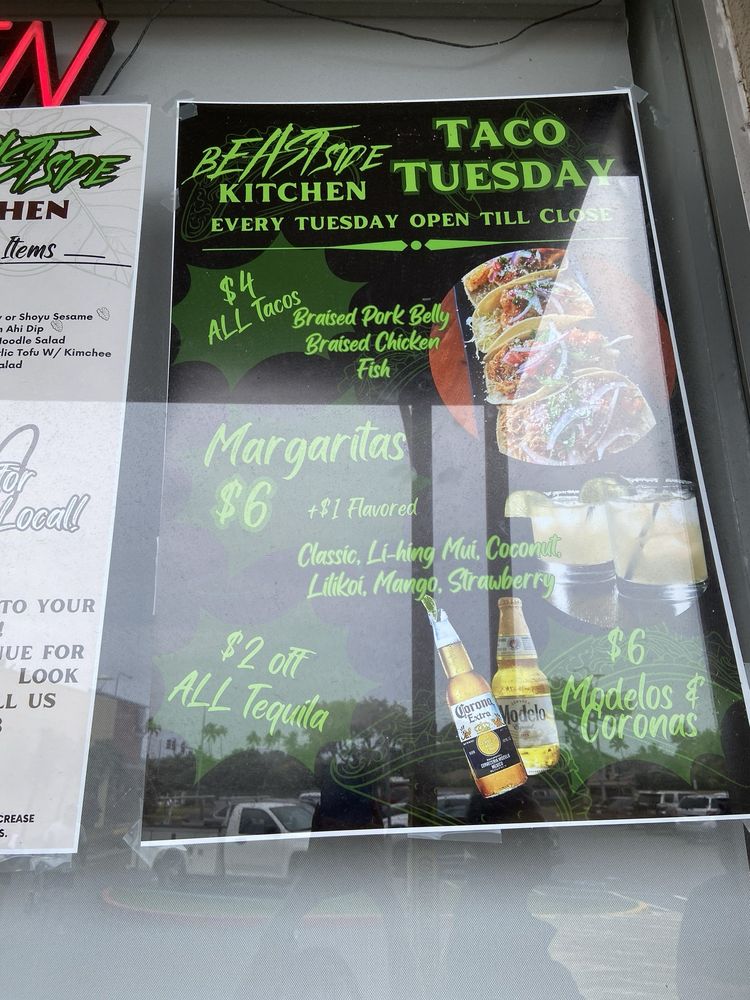 EASTSIDE
HEN
Items
or Shoyu Sesame
Ahi Dip
Noodle Salad
lic Tofu W/ Kimchee
alad
For
Local!
TO YOUR
!
NUE FOR
LOOK
LL US
CREASE
S.
BEASTSIDE
KITCHEN
TACO
TUESDAY
EVERY TUESDAY OPEN TILL CLOSE
$4
ALL Tacos
Braised Pork Belly
Braised Chicken
Fish
Margaritas
$6
+$1 Flavored
Classic, Li-hing Mui, Coconut,
Lilikoi, Mango, Strawberry
$2 off
ALL Tequila
Corona
Extra
Modelo
$6
Modelos &
Coronas